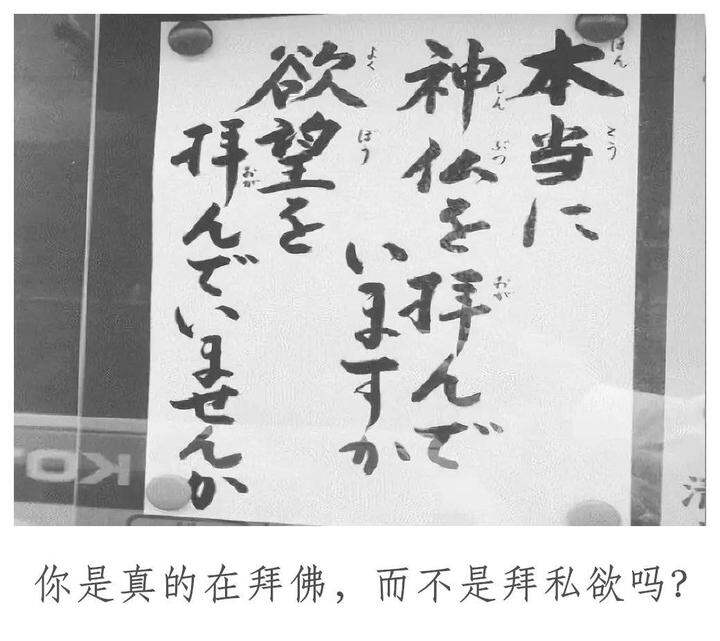 本当に
神仏を拝んで
いますか
欲望を
拝んでいませんか
ほん
とう
しん
ぶつ
おが
よく
ぼう
おが
KO
你是真的在拜佛，而不是拜私欲吗？